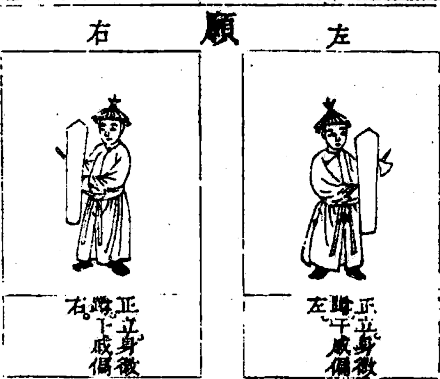 願
左
正立身微
蹲干戚偏
左
右
正立身微
蹲干戚偏
右